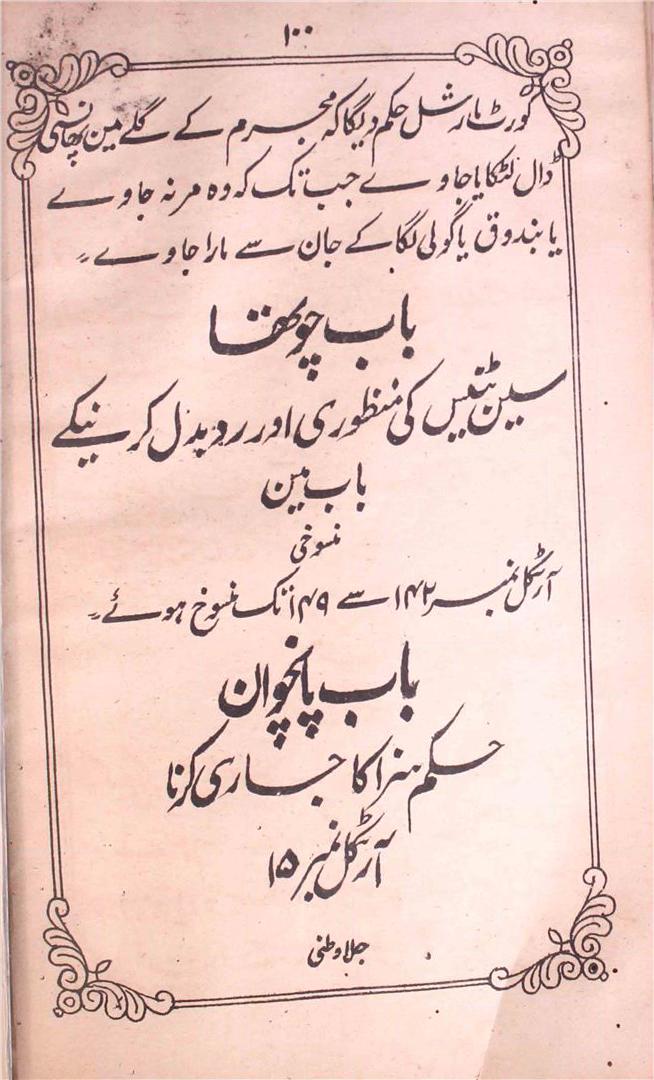 ۱۰۰
کورٹ مارشل حکم دیگا کہ مجرم کے گلے مین پھانسی
ڈال لٹکایا جاوے جب تک کہ وہ مر نہ جاوے
یا بندوق یا گولی لگا کے جان سے مارا جاوے۔
باب چوتھا
سین ٹنیس کی منظوری اور ردبدل کرنیکے
باب مین
منسوخی
آرٹکل نمبر ۱۴۲ سے ۱۴۹ تک منسوخ ہوئے۔
باب پانچوان
حکم سزا کا جاری کرنا
آرٹکل نمبر ۱۵
جلاوطنی